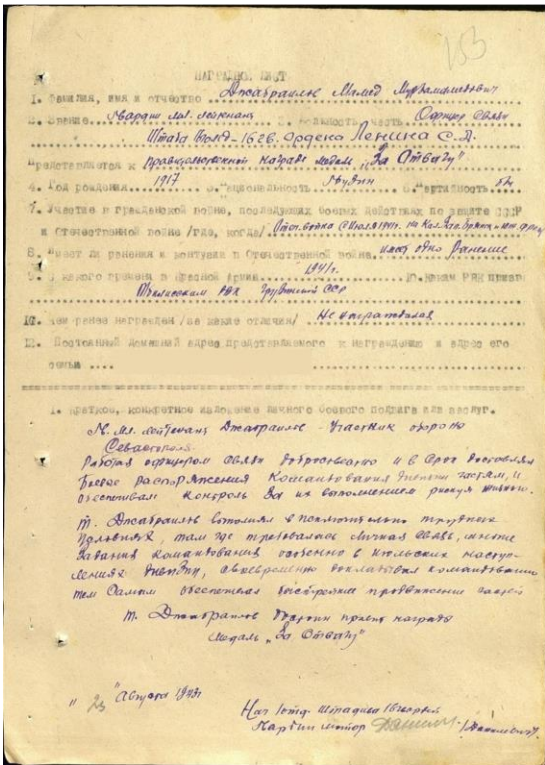 153
НАГРАДНОЙ ЛИСТ
1. Фамилия, имя и отчество Джабраилов Мамед
2. Звание Гвардии мл. лейтенант 3. Должность, часть Офицер связи
Штаба 16 гв. ордена Ленина С.Д.
Представляется к правительственной награде медаль „За Отвагу“
4. Год рождения 1917 5. Национальность Грузин 6. Партийность б/п
7. Участие в гражданской войне, последующих боевых действиях по защите СССР
и Отечественной войне /где, когда/ Отеч. война с июля 1941г.
8. Имеет ли ранения и контузии в Отечественной войне имеет одно ранение
9. С какого времени в Красной армии 1941г. 10. Каким РВК призван
Тбилисским РВК Грузинской ССР
11. Чем ранее награжден /за какие отличия/ Не награждался
12. Постоянный домашний адрес представляемого к награждению и адрес его
семьи
1. Краткое, конкретное изложение личного боевого подвига или заслуг.
Гв. мл. лейтенант Джабраилов - участник обороны
Севастополя.
Работая офицером связи добросовестно и в срок доставлял
боевое распоряжения командования частям, и
обеспечивал контроль за их выполнением рискуя жизнью.
т. Джабраилов выполнял в исключительно трудных
условиях, там где требовалась личная связь, многие
задания командования особенно в июльских наступ-
лениях дивизии, своевременно докладывал командованию
тем самым обеспечивал быстрейшее продвижение частей
т. Джабраилов достоин прав. награды
медаль „За Отвагу“
" 23 " Августа 1943г.
Гвардии майор